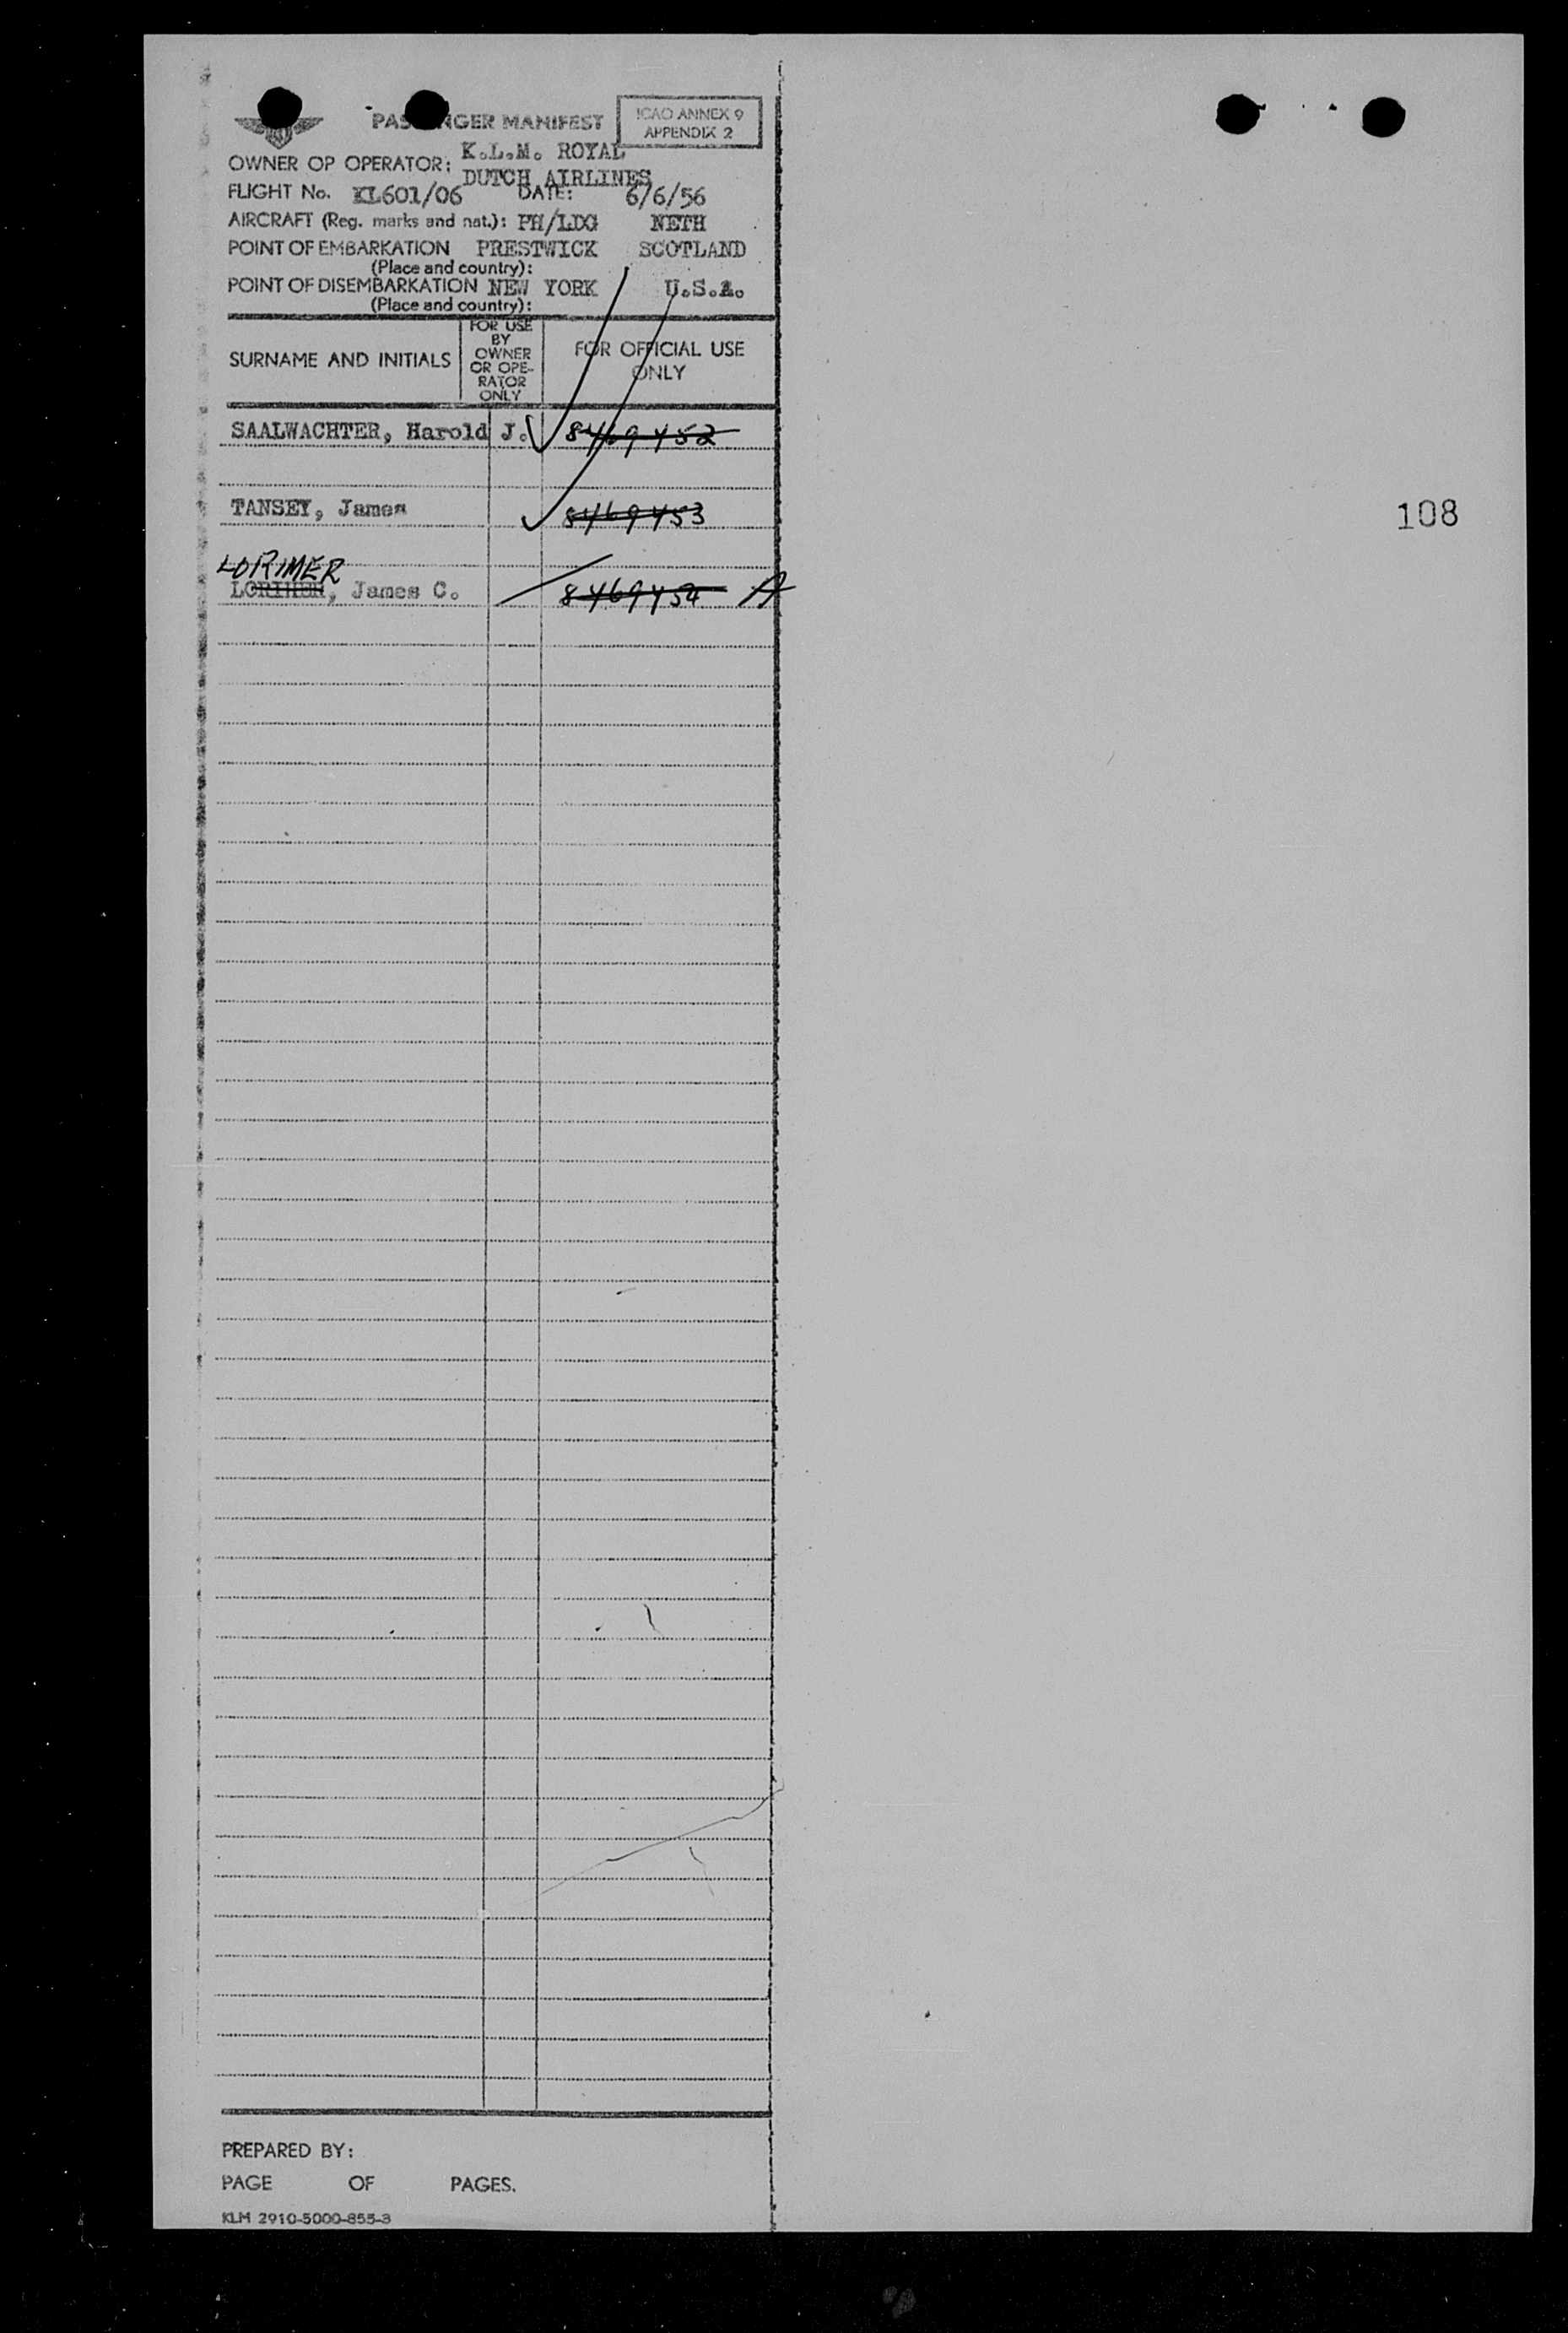 PASSENGER MANIFEST
ICAO ANNEX 9
APPENDIX 2
OWNER OP OPERATOR: K.L.M. ROYAL
DUTCH AIRLINES
FLIGHT No. KL601/06 DATE: 6/6/56
AIRCRAFT (Reg. marks and nat.): PH/LDG NETH
POINT OF EMBARKATION PRESTWICK SCOTLAND
(Place and country):
POINT OF DISEMBARKATION NEW YORK U.S.A.
(Place and country):
SURNAME AND INITIALS
FOR USE
BY
OWNER
OR OPE-
RATOR
ONLY
FOR OFFICIAL USE
ONLY
SAALWACHTER, Harold J. 8469452
TANSEY, James 8469453
108
LORIMER
James C. 8469454 A
PREPARED BY:
PAGE OF PAGES.
KLM 2910-5000-855-3